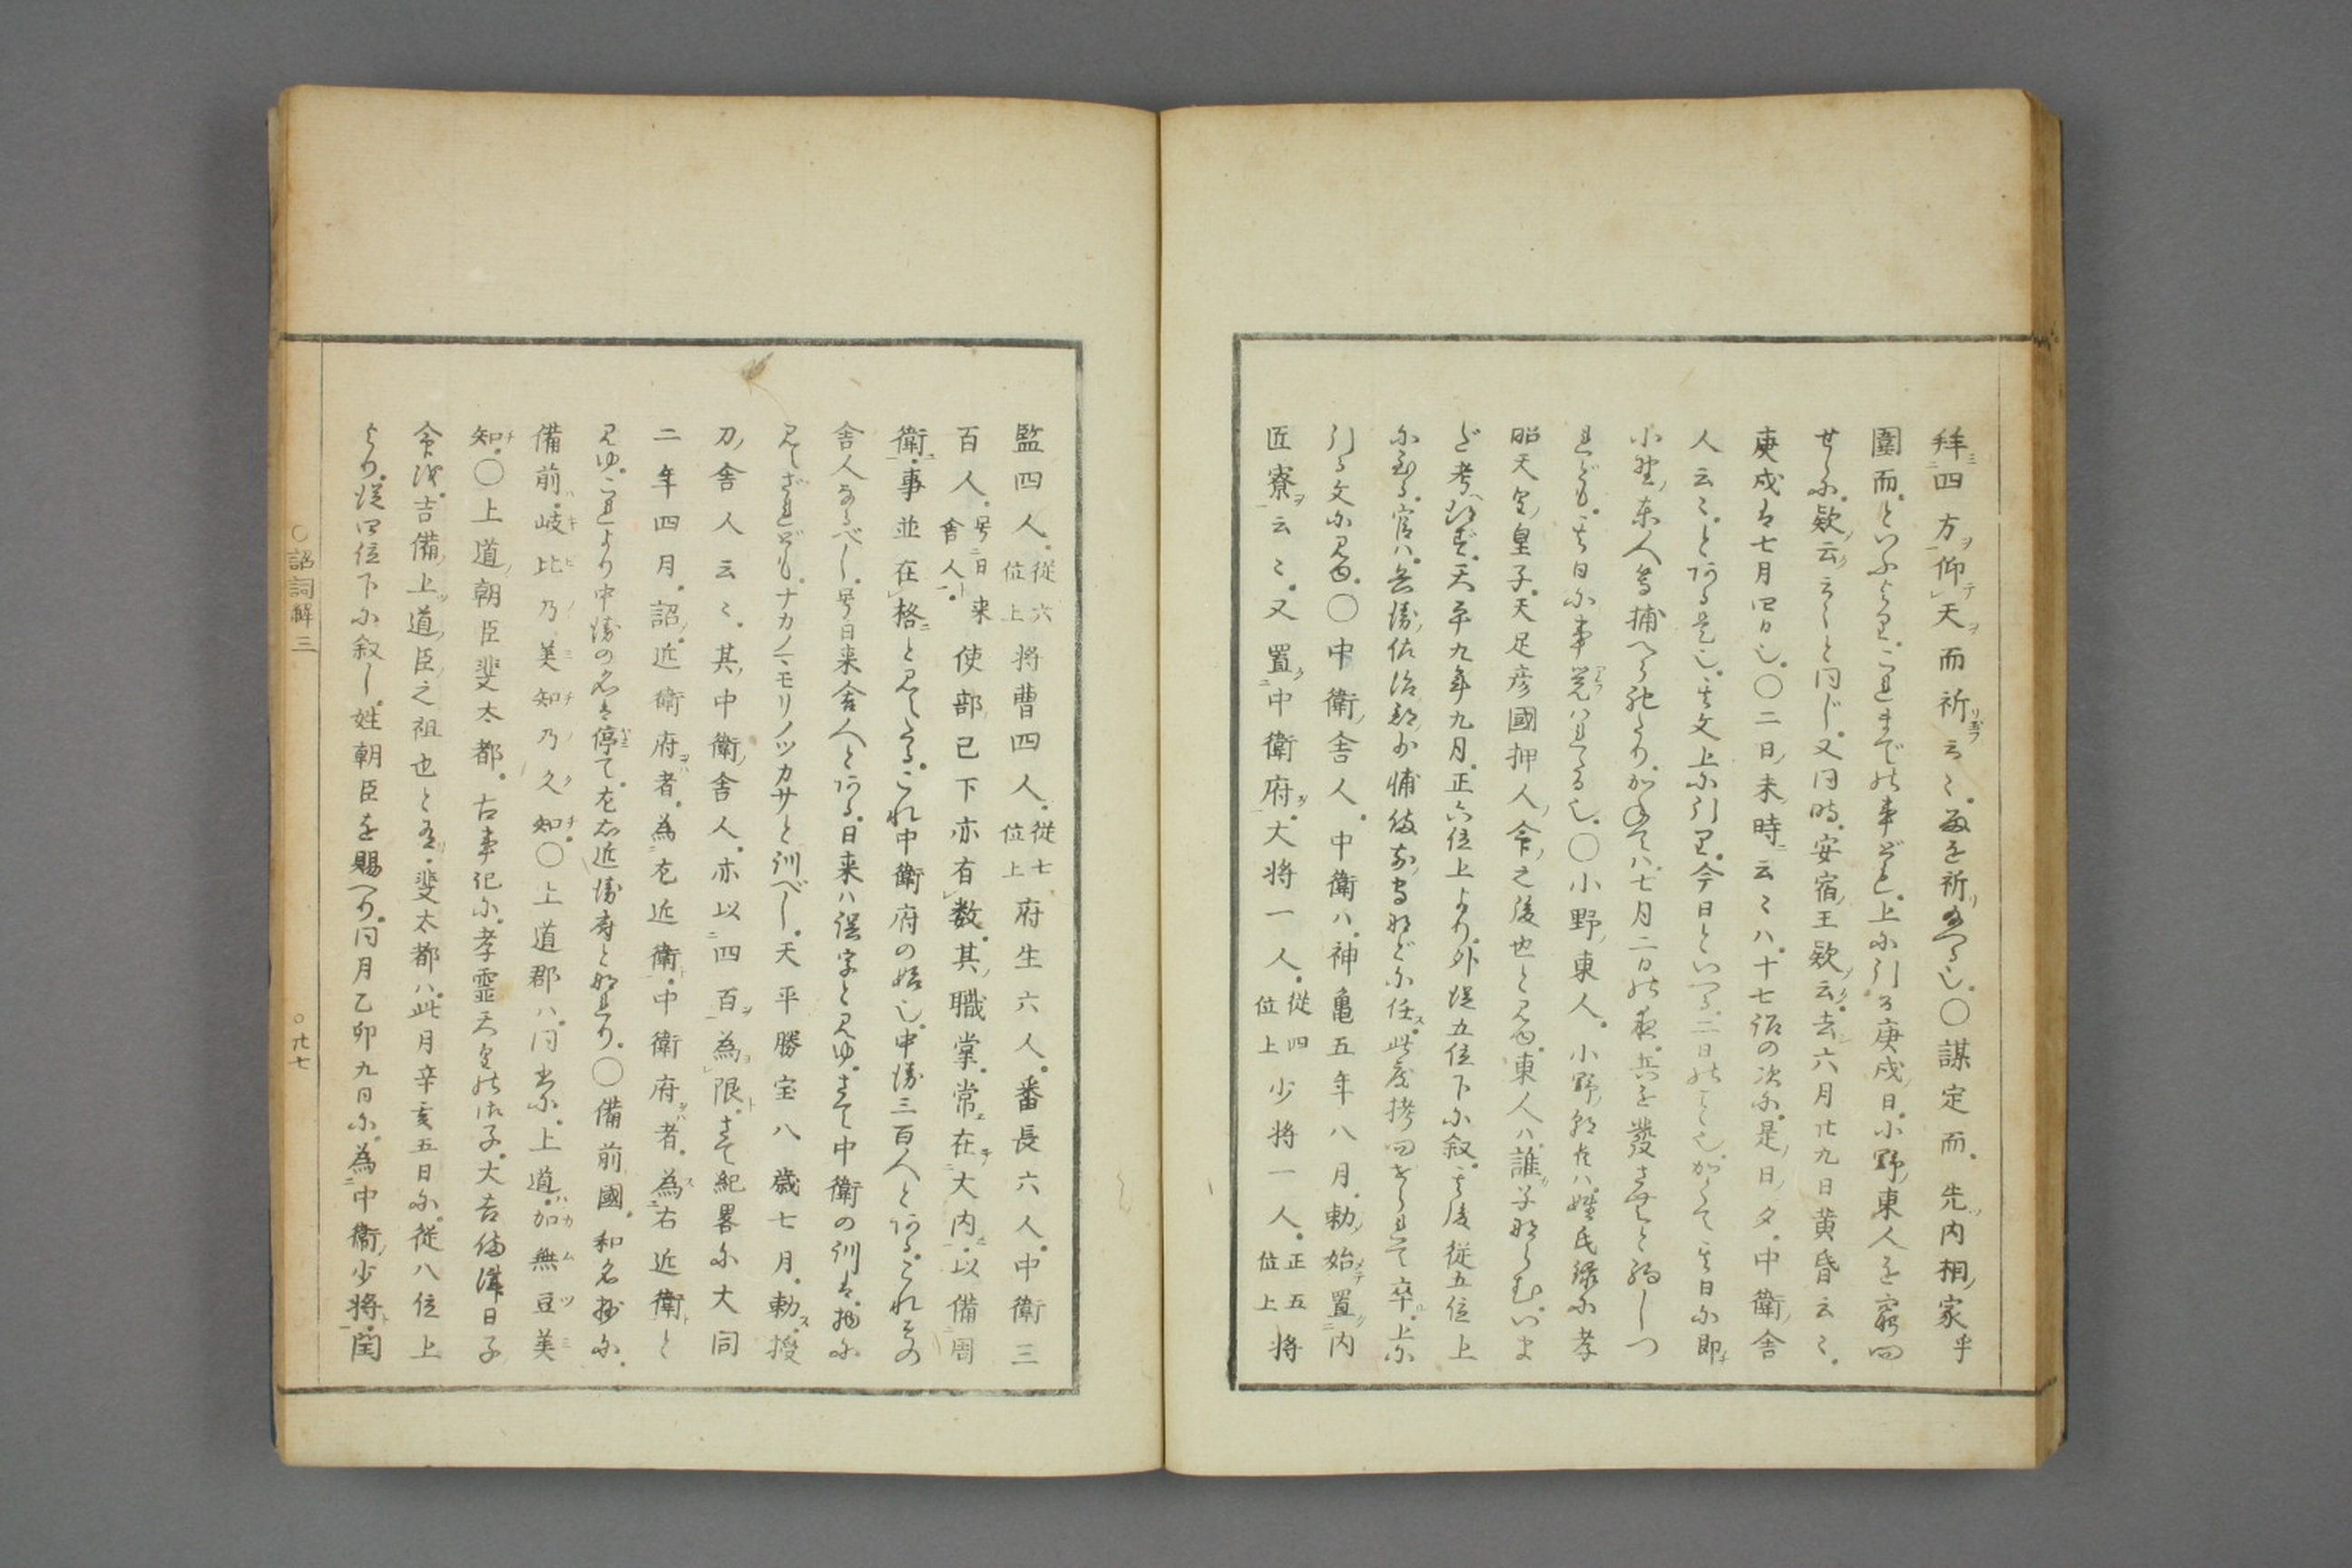 拜四方仰天而祈云々。西を祈る也。〇謀定而。先内相家乎
圍而。といふより。これまで此事ども。上に引る庚戌日。小野東人を窮問
せらに。欵云云々と同じ。又同時。安宿王欵云。去六月廿九日黄昏云々。
庚戌は七月四日也。〇二日未時云々ハ。十七詔の次に。是日夕。中衛舎
人云々。とある是也。其文上に引り。今日といへるは二日のこと也。かくて其日に即
小野東人等捕へられたり。かゝれハ。七月二日の夜。兵を發させむと謀しつ
れども。其日に事覺はれたる也。〇小野東人。小野朝臣ハ。姓氏録に孝
昭天皇皇子。天足彦國押人命之後也と見ゆ。東人ハ。誰子ならむ。いま
だ考へず。天平九年九月。正六位上より。外従五位下に叙。其後従五位上
に至る。官ハ。兵衛佐治部少輔備前守などに任。此度拷問せられて卒。上に
引る文に見ゆ。〇中衛舎人。中衛ハ。神亀五年八月。勅始置内
匠寮云々。又置中衛府。大将一人。従四位上少将一人。正五位上将
監四人。従六位上将曹四人。従七位上府生六人。番長六人。中衛三
百人。号日来舎人。使部已下亦有数。其職掌。常在大内。以備周
衛。事並在格と見えたる。これ中衛府の始也。中衛三百人とある。これその
舎人なるべし。号日来舎人とある。日来ハ誤字と見ゆ。さて中衛の訓は。物に
見えざれども。ナカノマモリノツカサと訓べし。天平勝宝八歳七月。勅授
刀舎人云々。其中衛舎人。亦以四百為限。さて紀畧に大同
二年四月。詔近衛府者。為左近衛。中衛府者。為右近衛と
見ゆ。これより中衛の名は停て。左右近衛府となれり。〇備前國。和名抄に。
備前。岐比乃美知乃久知。〇上道郡ハ。同書に。上道。加無豆美
知。〇上道朝臣斐太都。古事記に。孝霊天皇の御子。大吉備津日子
命は。吉備上道臣之祖也と有。斐太都ハ。此月辛亥五日に。従八位上
より。従四位下に叙し。姓朝臣を賜へり。同月乙卯九日に。為中衛少将。閏
〇詔詞解三
〇廿七